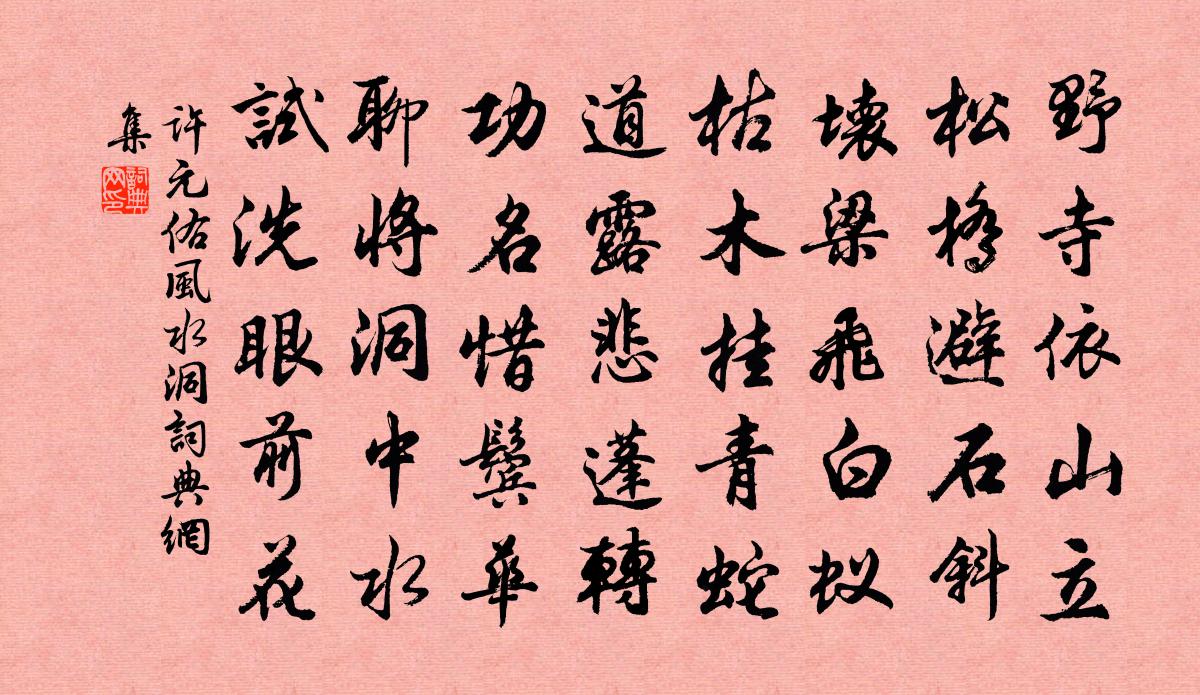 野寺依山立
松橋避石斜
壊梁飛白蚁
枯木挂青蛇
道露悲蓬轉
功名惜鬓華
聊将洞中水
試洗眼前花
許元佑風水洞詞典網
集
詞典
网印